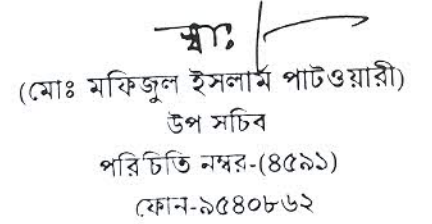 স্বাঃ
(মোঃ মফিজুল ইসলাম পাটওয়ারী)
উপ সচিব
পরিচিতি নম্বর-(৪৫৯১)
ফোন-৯৫৪০৮৬২